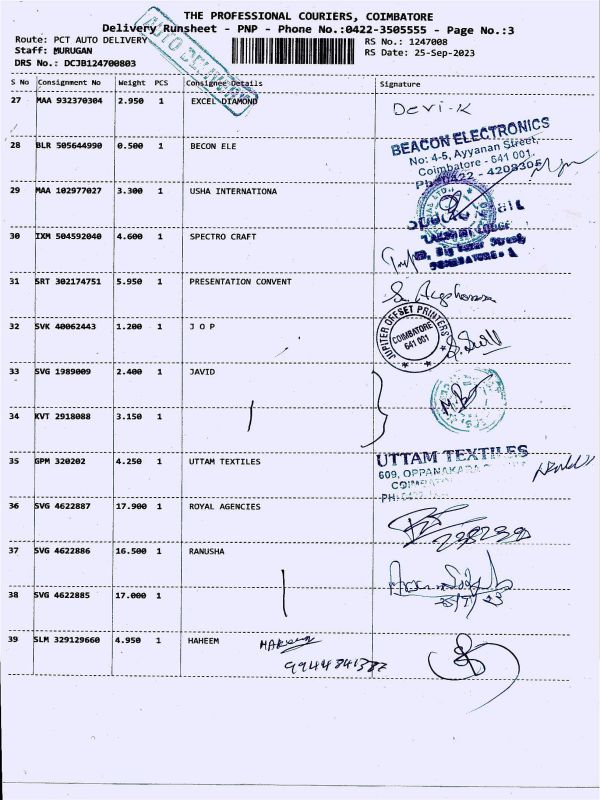 THE PROFESSIONAL COURIERS, COIMBATORE
Delivery Runsheet - PNP - Phone No.:0422-3505555 - Page No.:3
Route: PCT AUTO DELIVERY
RS No.: 1247008
Staff: MURUGAN
RS Date: 25-Sep-2023
DRS No.: DCJB124700803
AUTO DELIVERY
S No Consignment No Weight PCS Consignee Details Signature
27 MAA 932370304 2.950 1 EXCEL DIAMOND Devi-K
28 BLR 505644990 0.500 1 BECON ELE
BEACON ELECTRONICS
No: 4-5, Ayyanan Street,
Coimbatore - 641 001.
Ph: 0422 - 4208305
29 MAA 102977027 3.300 1 USHA INTERNATIONA
30 IXM 504592040 4.600 1 SPECTRO CRAFT
31 SRT 302174751 5.950 1 PRESENTATION CONVENT
32 SVK 40062443 1.200 1 J O P
JUPITER OFFSET PRINTERS
COIMBATORE
641 001
33 SVG 1989009 2.400 1 JAVID
34 KVT 2918088 3.150 1
35 GPM 320202 4.250 1 UTTAM TEXTILES
UTTAM TEXTILES
609, OPPANAKARA
36 SVG 4622887 17.900 1 ROYAL AGENCIES
37 SVG 4622886 16.500 1 RANUSHA
38 SVG 4622885 17.000 1
39 SLM 329129660 4.950 1 HAHEEM